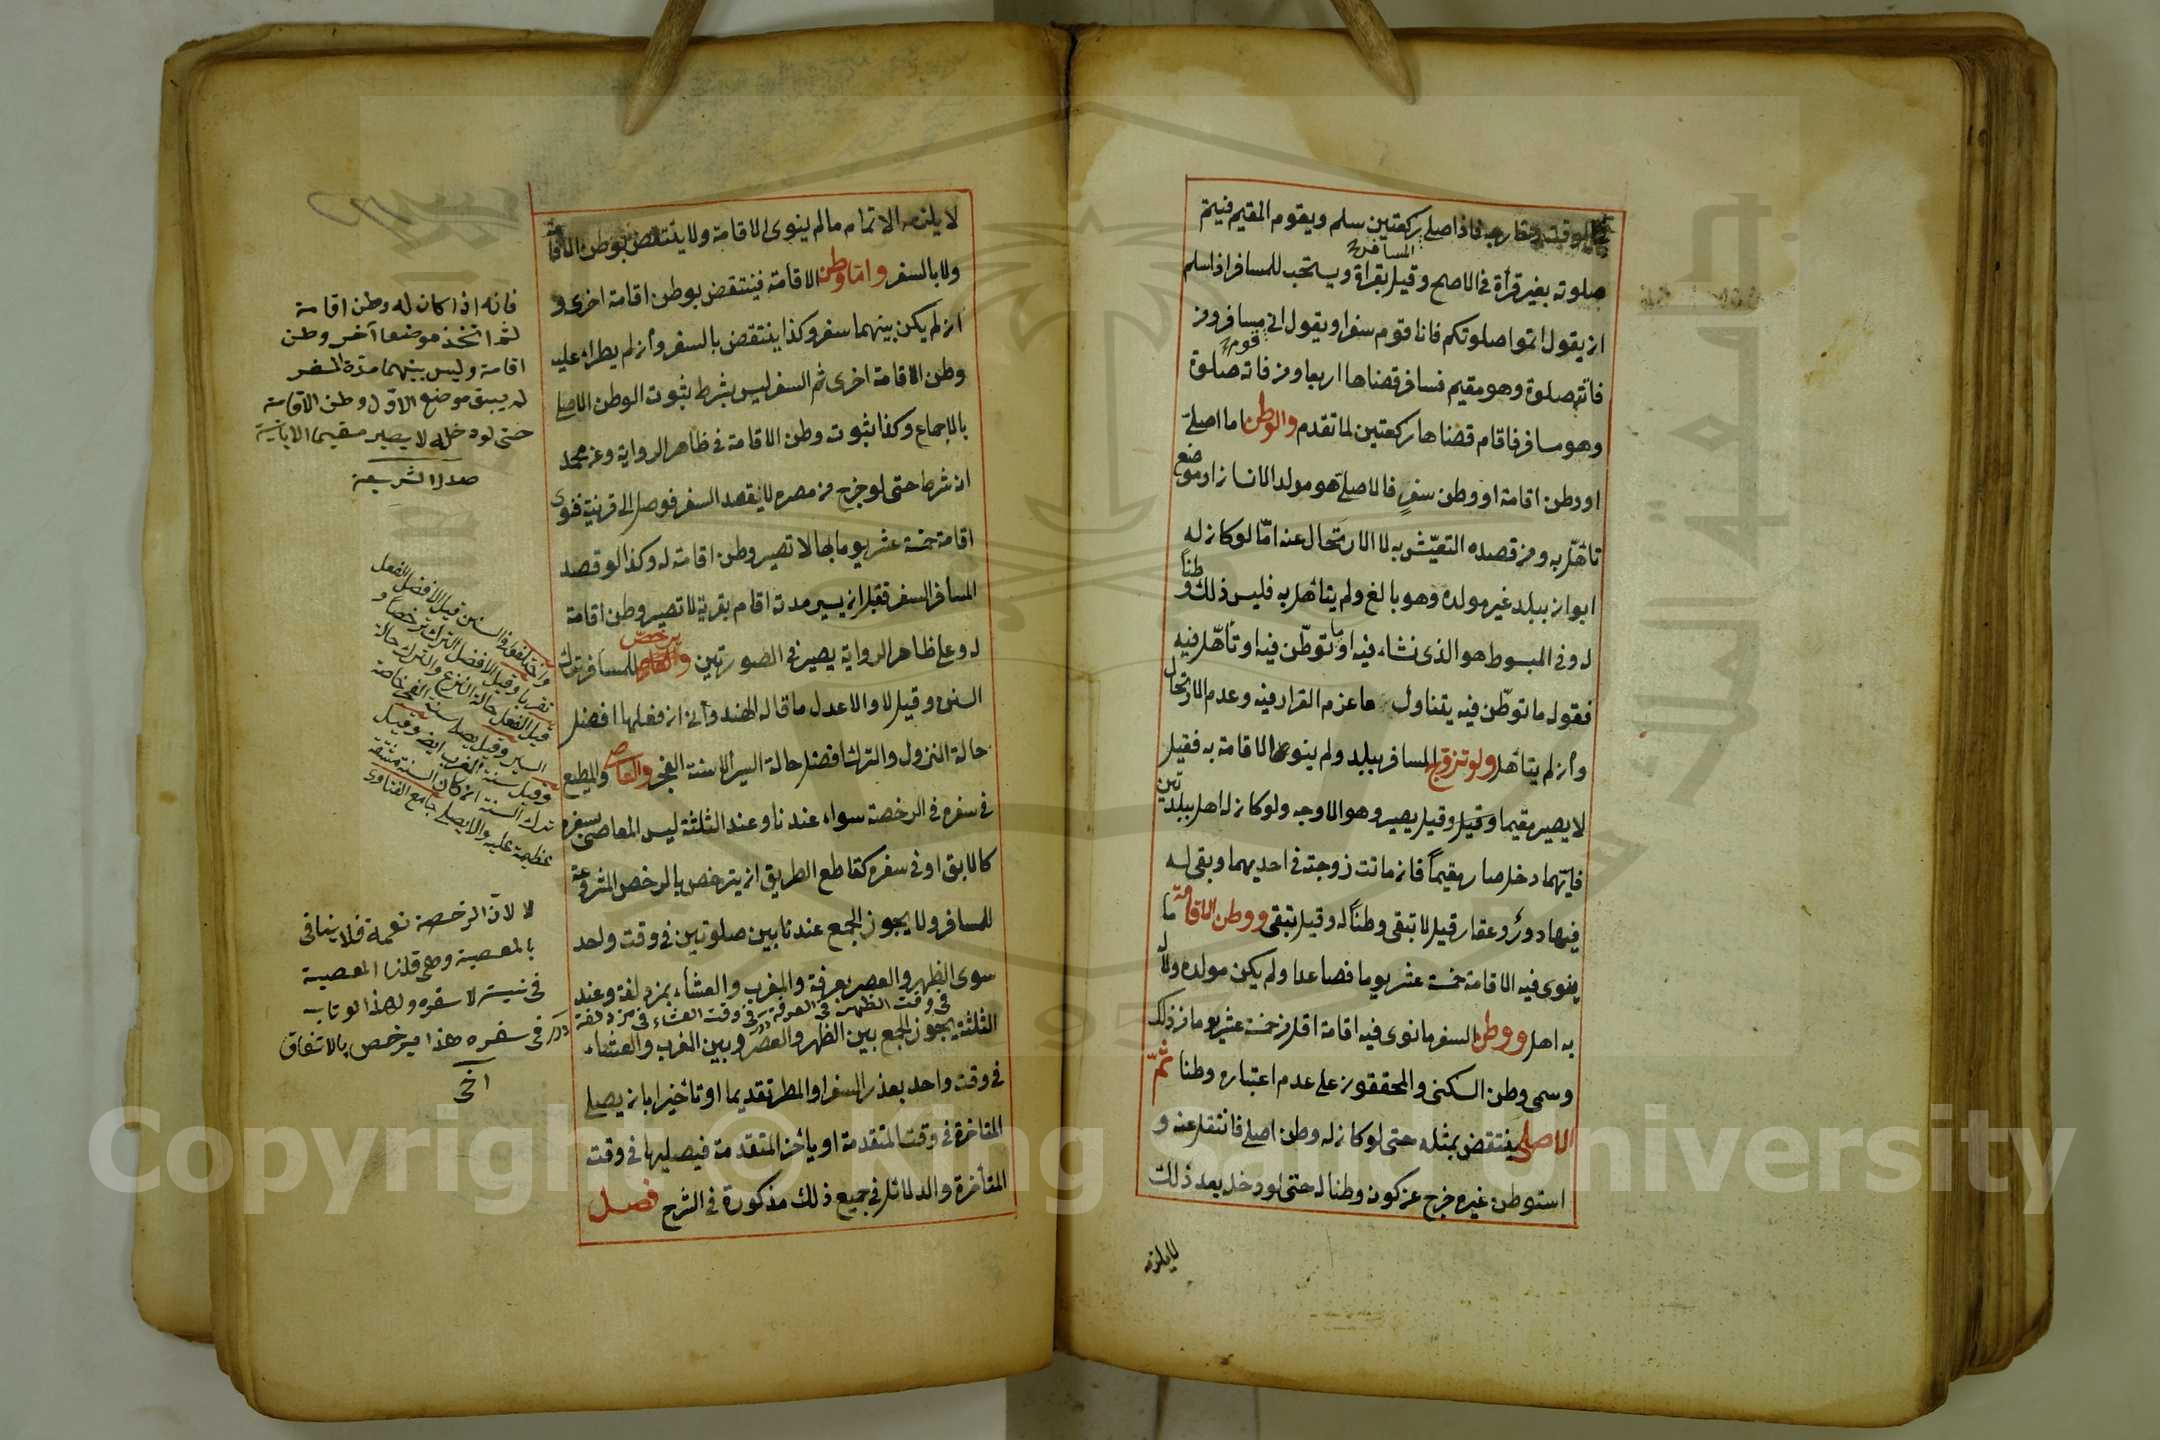 الوقت وخارجه فاذا صلى ركعتين سلم ويقوم المقيم فيتم
المسافر
صلوته بغير قرأة في الاصح وقيل بقراة ويستحب للمسافر اذا سلم
ان يقول اتموا صلوتكم فانا قوم سفر او يقول اني مسافر ومن
قوم
فاتته صلوة وهو مقيم فسافر قضاها اربعا ومن فاته صلوة
وهو مسافر فاقام قضاها ركعتين لما تقدم والوطن اما اصلي
او وطن اقامة او وطن سفر فالاصلي هو مولد الانسان او موضع
تأهل به ومن قصده التعيش به لا الارتحال عنه امّا لو كان له
ابوان ببلد غير مولده وهو بالغ ولم يتأهل به فليس ذلك وطناً
له وفي المبسوط هو الذي نشاء فيه او ما توطّن فيه او تأهّل فيه
فقوله ما توطّن فيه يتناول ما عزم القرار فيه وعدم الارتحال
وأن لم يتأهل ولو تزوج المسافر ببلد ولم ينوي الاقامة به فقيل
لا يصير مقيما وقيل وقيل يصير وهو الاوجه ولو كان له اهل ببلدتين
فايّتهما دخل صار مقيماً فان ماتت زوجته في احديهما وبقي له
فيها دور وعقار قيل لا تبقى وطناً له وقيل تبقى ووطن الاقامة ما
ينوى فيه الاقامة خمسة عشر يوما فصاعدا ولم يكن مولده ولا له
به اهل ووطن السفر ما نوى فيه اقامة اقل من خمسة عشر يوما من ذلك
وسمى وطن السكنى والمحققون على عدم اعتباره وطنا ثمّ
الاصلي ينتقض بمثله حتى لو كان له وطن اصلي فانتقل عنه و
استوطن غيره خرج عن كون وطنا له حتى لو دخل بعد ذلك
لا يلزمه
لا يلزمه الاتمام ما لم ينوى الاقامة ولا ينتقض بوطن الاقامة
ولا بالسفر وامّا وطن الاقامة فينتقض بوطن اقامة اخرى و
ان لم يكن بينهما سفر وكذا ينتقض بالسفر وأن لم يطرا عليه
وطن الاقامة اخرى ثم السفر ليس بشرط ثبوت الوطن الاصلي
بالاجماع وكذا ثبوت وطن الاقامة في ظاهر الرواية وعن محمد
انه شرط حتى لو خرج من مصره لا يقصد السفر فوصل الى قرية فنوى
اقامة خمسة عشر يوما بها لا تصير وطن اقامة له وكذا لو قصد
المسافر السفر فقبل ان يسير مدته اقام بقرية لا تصير وطن اقامة
له وعلى ظاهر الرواية يصير في الصورتين للمسافر ترك
السنن وقيل لا والاعدل ما قاله الهندوأني ان فعلها افضل
حالة النزول والترك افضل حالة السير الا سنة الفجر والعاصي والمطيع
في سفره في الرخصة سواء عندنا وعند الثلثة ليس للعاصي بسفره
كالابق او في سفره كقاطع الطريق ان يترخص بالرخص المشروعة
للمسافر ولا يجوز الجمع عندنا بين صلوتين في وقت واحد
سوى الظهر والعصر بعرفة والمغرب والعشاء بمزدلفة وعند
في وقت الظهر في العرفة وفي وقت العشاء في مزدلفة
الثلثة يجوز الجمع بين الظهر والعصر وبين المغرب والعشاء
في وقت واحد بعذر السفر او المطر تقديما او تأخيرا بان يصلي
المتاخرة في وقت المتقدمة او يأخر المتقدمة فيصليها في وقت
المتأخرة والدلائل في جميع ذلك مذكورة في الشرح فصل
فانه اذا كان له وطن اقامة
ثم اتخذ موضعا آخر وطن
اقامة وليس بينهما مدة السفر
لم يبق موضع الاول وطن الاقامة
حتى لو دخله لا يصير مقيما الا بالنية
صدر الشريعة
واختلفوا في السنن قيل الافضل الفعل
تقربا وقيل الافضل الترك ترخصاً و
قيل الفعل حالة النزع والترك حالة
السير وقيل يصلي سنة الفجر خاصة
وقيل سنة المغرب ايضا وقيل
ترك السنة ان كان السنة
عليه والا يصلي جامع الفتاوى
لا لانّ الرخصة نعمة فلا ينافي
بالمعصية وهي قلنا المعصية
في نيته لا سفره ولهذا لو تاب
في سفره هذا يترخص بالاتفاق
اخي
Copyright © King Saud University